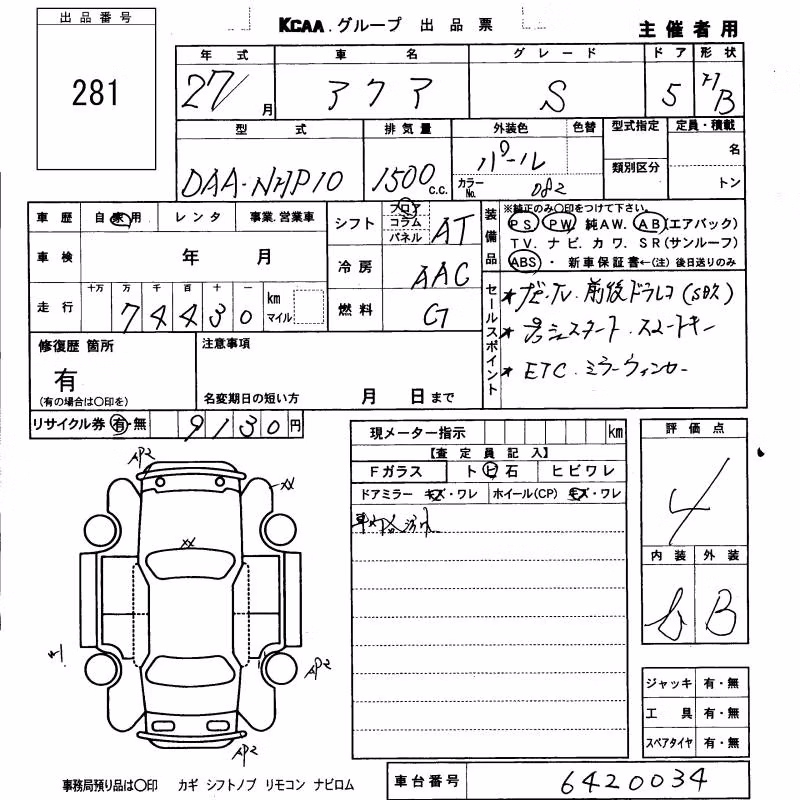 出品番号
281
KCAA.グループ 出品票
主催者用
年式 車名 グレード ドア 形状
27/月 アクア S 5 H/B
型式 排気量 外装色 色替 型式指定 定員・積載
DAA-NHP10 1500 C.C. パール 類別区分 名
カラーNo. 082 トン
車歴 自家用 レンタ 事業.営業車
シフト フロア コラム パネル AT
車検 年 月
冷房 AAC
走行 十万 万 千 百 十 一 km マイル
74430
燃料 G
装備品
※純正のみ○印をつけて下さい。
PS PW 純AW. AB(エアバック)
TV. ナビ. カワ. SR(サンルーフ)
ABS ・ 新車保証書←(注)後日送りのみ
セールスポイント
★ナビ.TV. 前後ドラレコ
★プッシュスタート.スマートキー
★ETC.ミラーウィンカー
修復歴 箇所
有
(有の場合は○印を)
注意事項
名変期日の短い方 月 日まで
リサイクル券 有・無 9130円
現メーター指示 km
【査定員記入】
Fガラス ト ビ 石 ヒビワレ
ドアミラー キズ・ワレ ホイール(CP) キズ・ワレ
評価点
4
内装 外装
B
AP2
XX
XX
AP2
AP2
ジャッキ 有・無
工具 有・無
スペアタイヤ 有・無
事務局預り品は○印 カギ シフトノブ リモコン ナビロム
車台番号 6420034